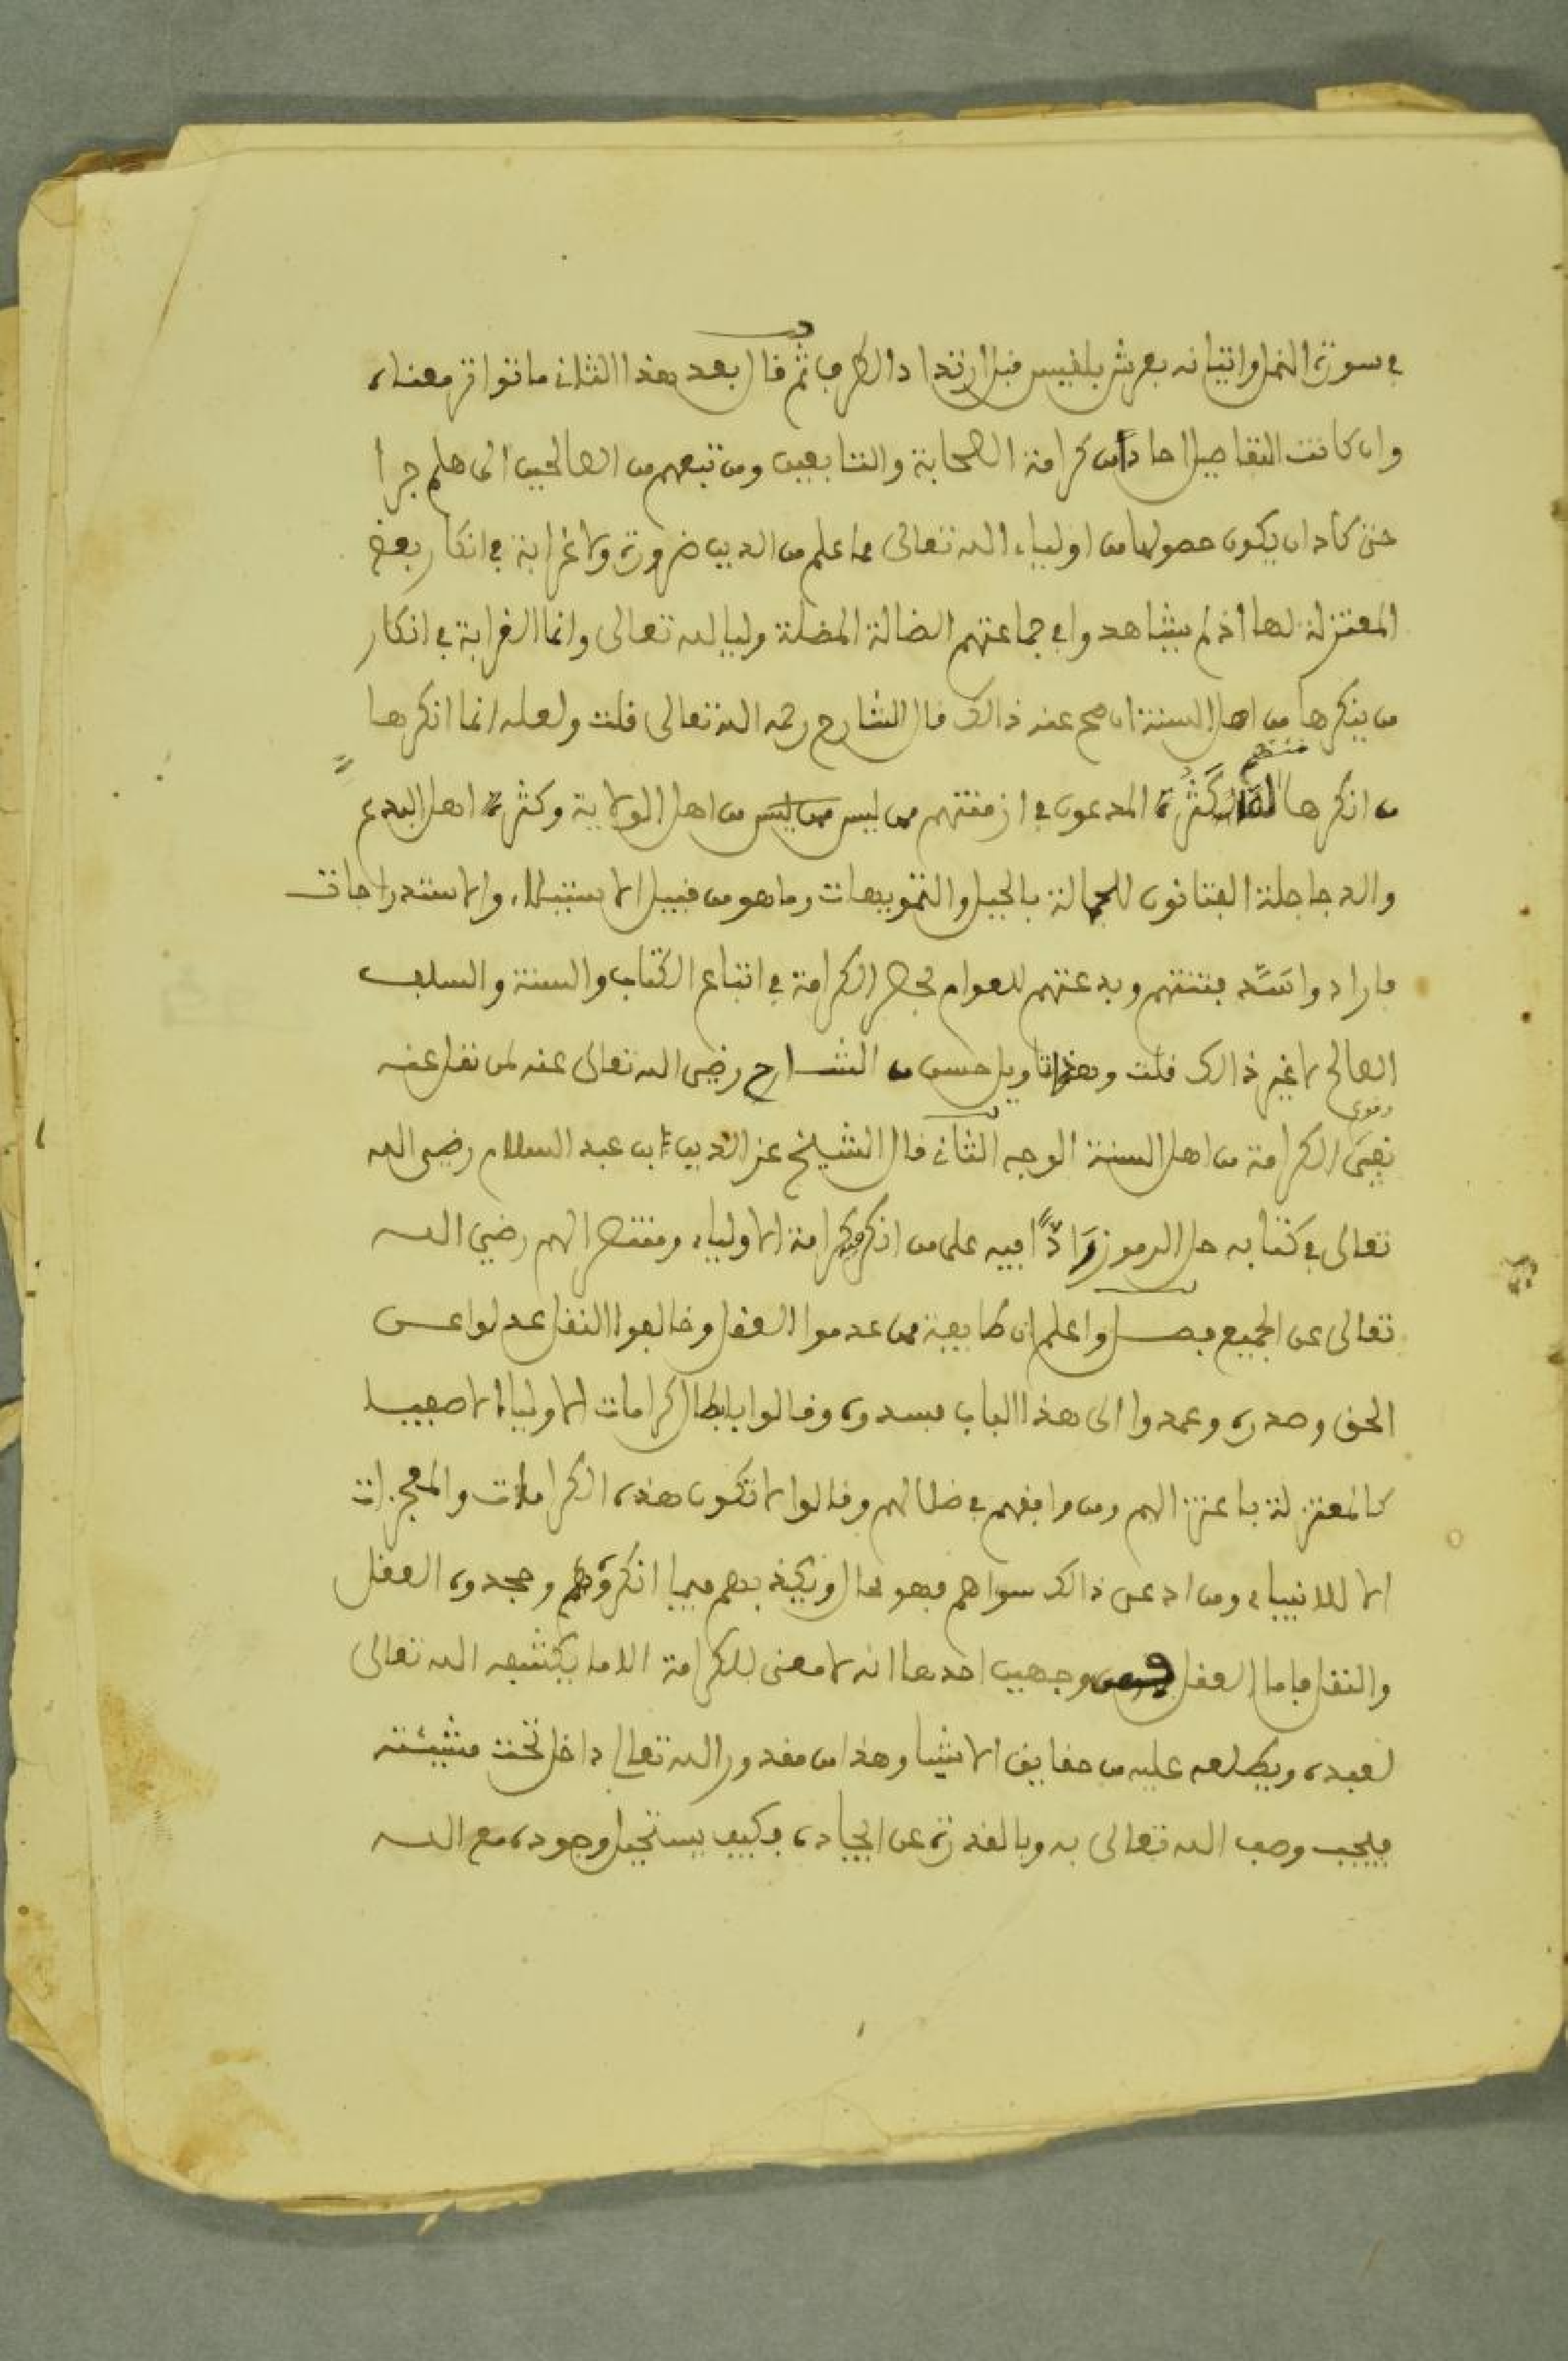 في سورة النمل واتيانه بعرش بلقيس قبل ارتداد الطرف ثم قال بعد هذا الثاني ما تواتر معناه
وان كانت التفاصيل احادا من كرامة الصحابة والتابعين ومن تبعهم من الصالحين الى هلم جرا
حتى كاد ان يكون حصولها من اولياء الله تعالى مما علم من الدين ضرورة ولا غرابة في انكار بعض
المعتزلة لها اذ لم يشاهدوا في جماعتهم الضالة المضلة وليا لله تعالى وانما الغرابة في انكار
من ينكرها من اهل السنة ان صح عنه ذالك قال الشارح رحمه الله تعالى قلت ولعله انما انكرها
من انكرها منهم لكثرة المدعون في ازمنتهم ممن ليس من اهل الولاية وكثرة اهل البدع
والدجاجلة الفتانون للجهالة بالحيل والتمويهات وما هو من قبيل الاستيلاء والاستدراجات
فارادوا سد فتنتهم وبدعتهم للعوام بحصر الكرامة في اتباع الكتاب والسنة والسلف
الصالح لا غير ذالك قلت وهذا تاويل حسن من الشارح رضي الله تعالى عنه لمن نقل عنه
نفي الكرامة من اهل السنة الوجه الثاني قال الشيخ عز الدين ابن عبد السلام رضي الله
تعالى في كتابه حل الرموز رادا فيه على من انكر كرامة الاولياء ومنتصرا لهم رضي الله
تعالى عن الجميع فصل واعلم ان طايفة ممن عدموا العقل وخالفوا النقل عدلوا عن
الحق وصدوه وعمدوا الى هذا الباب فسدوه وقالوا بابطال كرامات الاوليا الاصفيا
كالمعتزلة باعتزالهم ومن وافقهم في ضلالهم وقالوا لا تكون هذه الكرامات والمعجزات
الا للانبياء ومن ادعى ذالك سواهم فهو محال ويكذبهم فيما انكروه وجحدوه العقل
والنقل فاما العقل فمن وجهين احدهما انه لا معنى للكرامة الا ما يكشفه الله تعالى
لعبده ويطلعه عليه من حقايق الاشيا وهذا من مقدور الله تعالى داخل تحت مشيئته
فيجب وصف الله تعالى به وبالقدرة عن ايجاده فكيف يستحيل وجوده مع الله